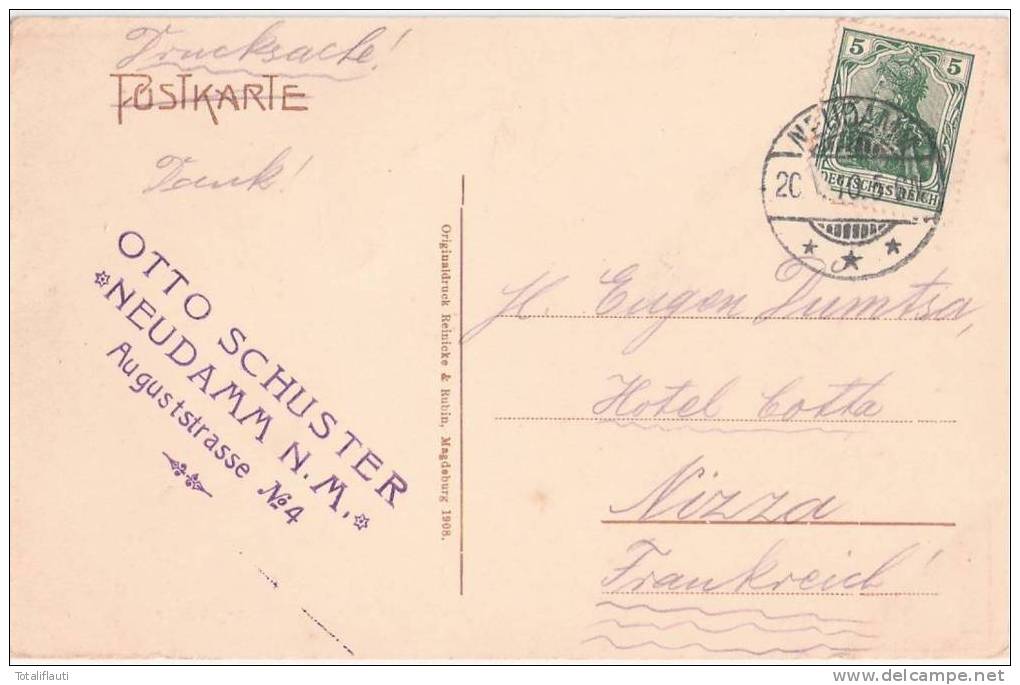 Drucksache!
POSTKARTE
Dank!
OTTO SCHUSTER
NEUDAMM N.M.
Auguststrasse No 4
Originaldruck Reinicke & Rubin, Magdeburg 1908.
5 5
DEUTSCHES REICH
NEUDAMM
20 10.5-6N
H. Eugen Dumtsa,
Hotel Cotta
Nizza
Frankreich!
Totaliflauti
www.delcampe.net